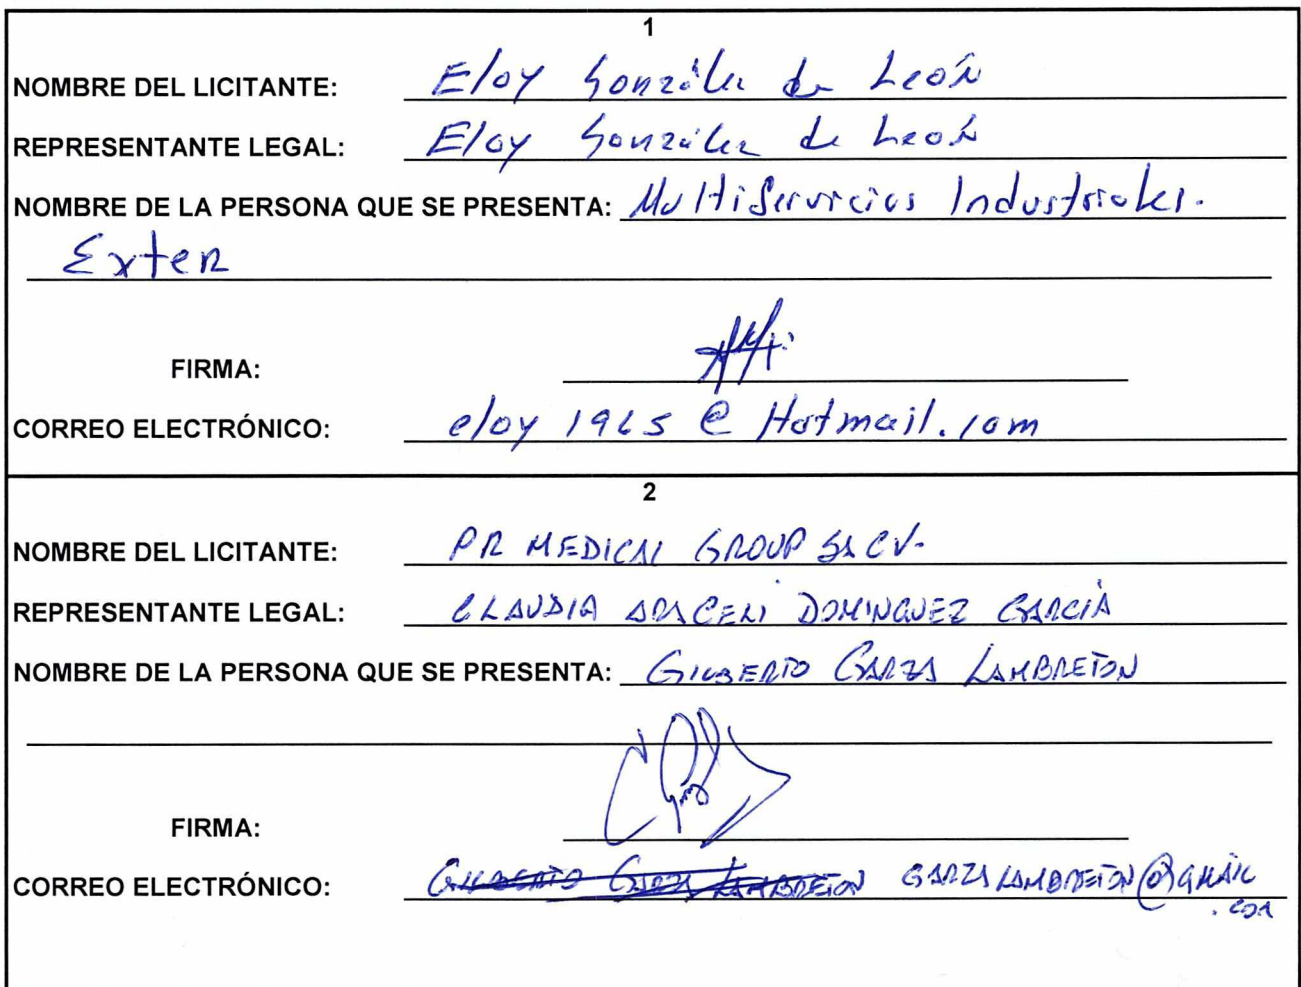 1
NOMBRE DEL LICITANTE: Eloy González de León
REPRESENTANTE LEGAL: Eloy González de León
NOMBRE DE LA PERSONA QUE SE PRESENTA: MultiServicios Industriales.
Exter
FIRMA:
CORREO ELECTRÓNICO: eloy 1965 @ Hotmail.com
2
NOMBRE DEL LICITANTE: PR MEDICAL GROUP SA CV.
REPRESENTANTE LEGAL: CLAUDIA ARACELI DOMINGUEZ GARCIA
NOMBRE DE LA PERSONA QUE SE PRESENTA: GILBERTO GARZA LAMBRETON
FIRMA:
CORREO ELECTRÓNICO: GILBERTO GARZA LAMBRETON GARZALAMBRETON@GMAIL
.COM